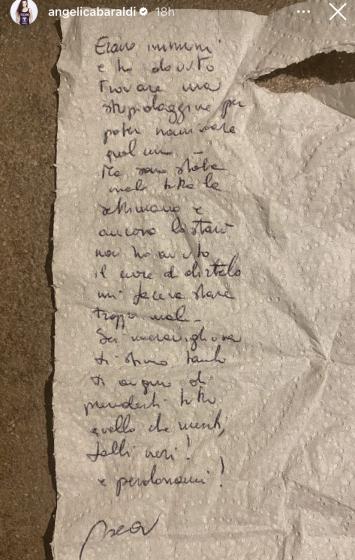 angelicabaraldi 18h
Erano immuni
e ho dovuto
trovare una
stupidaggine per
poter nominare
qualcuno -
Ma sono stata
male tutta la
settimana e
ancora
non ho avuto
il cuore di dirtelo
mi faceva stare
troppo male -
Sei meravigliosa
ti stimo tanto
ti auguro di
prenderti tutto
quello che meriti,
falli neri!
e perdonami!